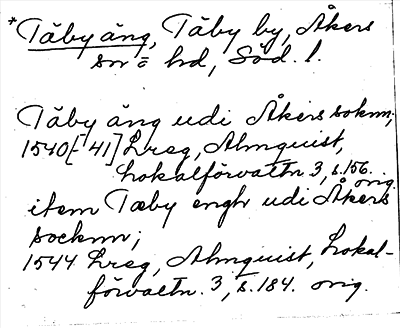 *Täby äng, Täby by, Åkers
sn o hd, Söd. l.
Täby äng udi Åkers soknn;
1540[-41] Lreg, Almquist,
Lokalförvaltn 3, s.156.
orig.
item Tæby engh udi Åkers
socknn;
1544 Lreg, Almquist, Lokal-
förvaltn. 3, s.184. orig.